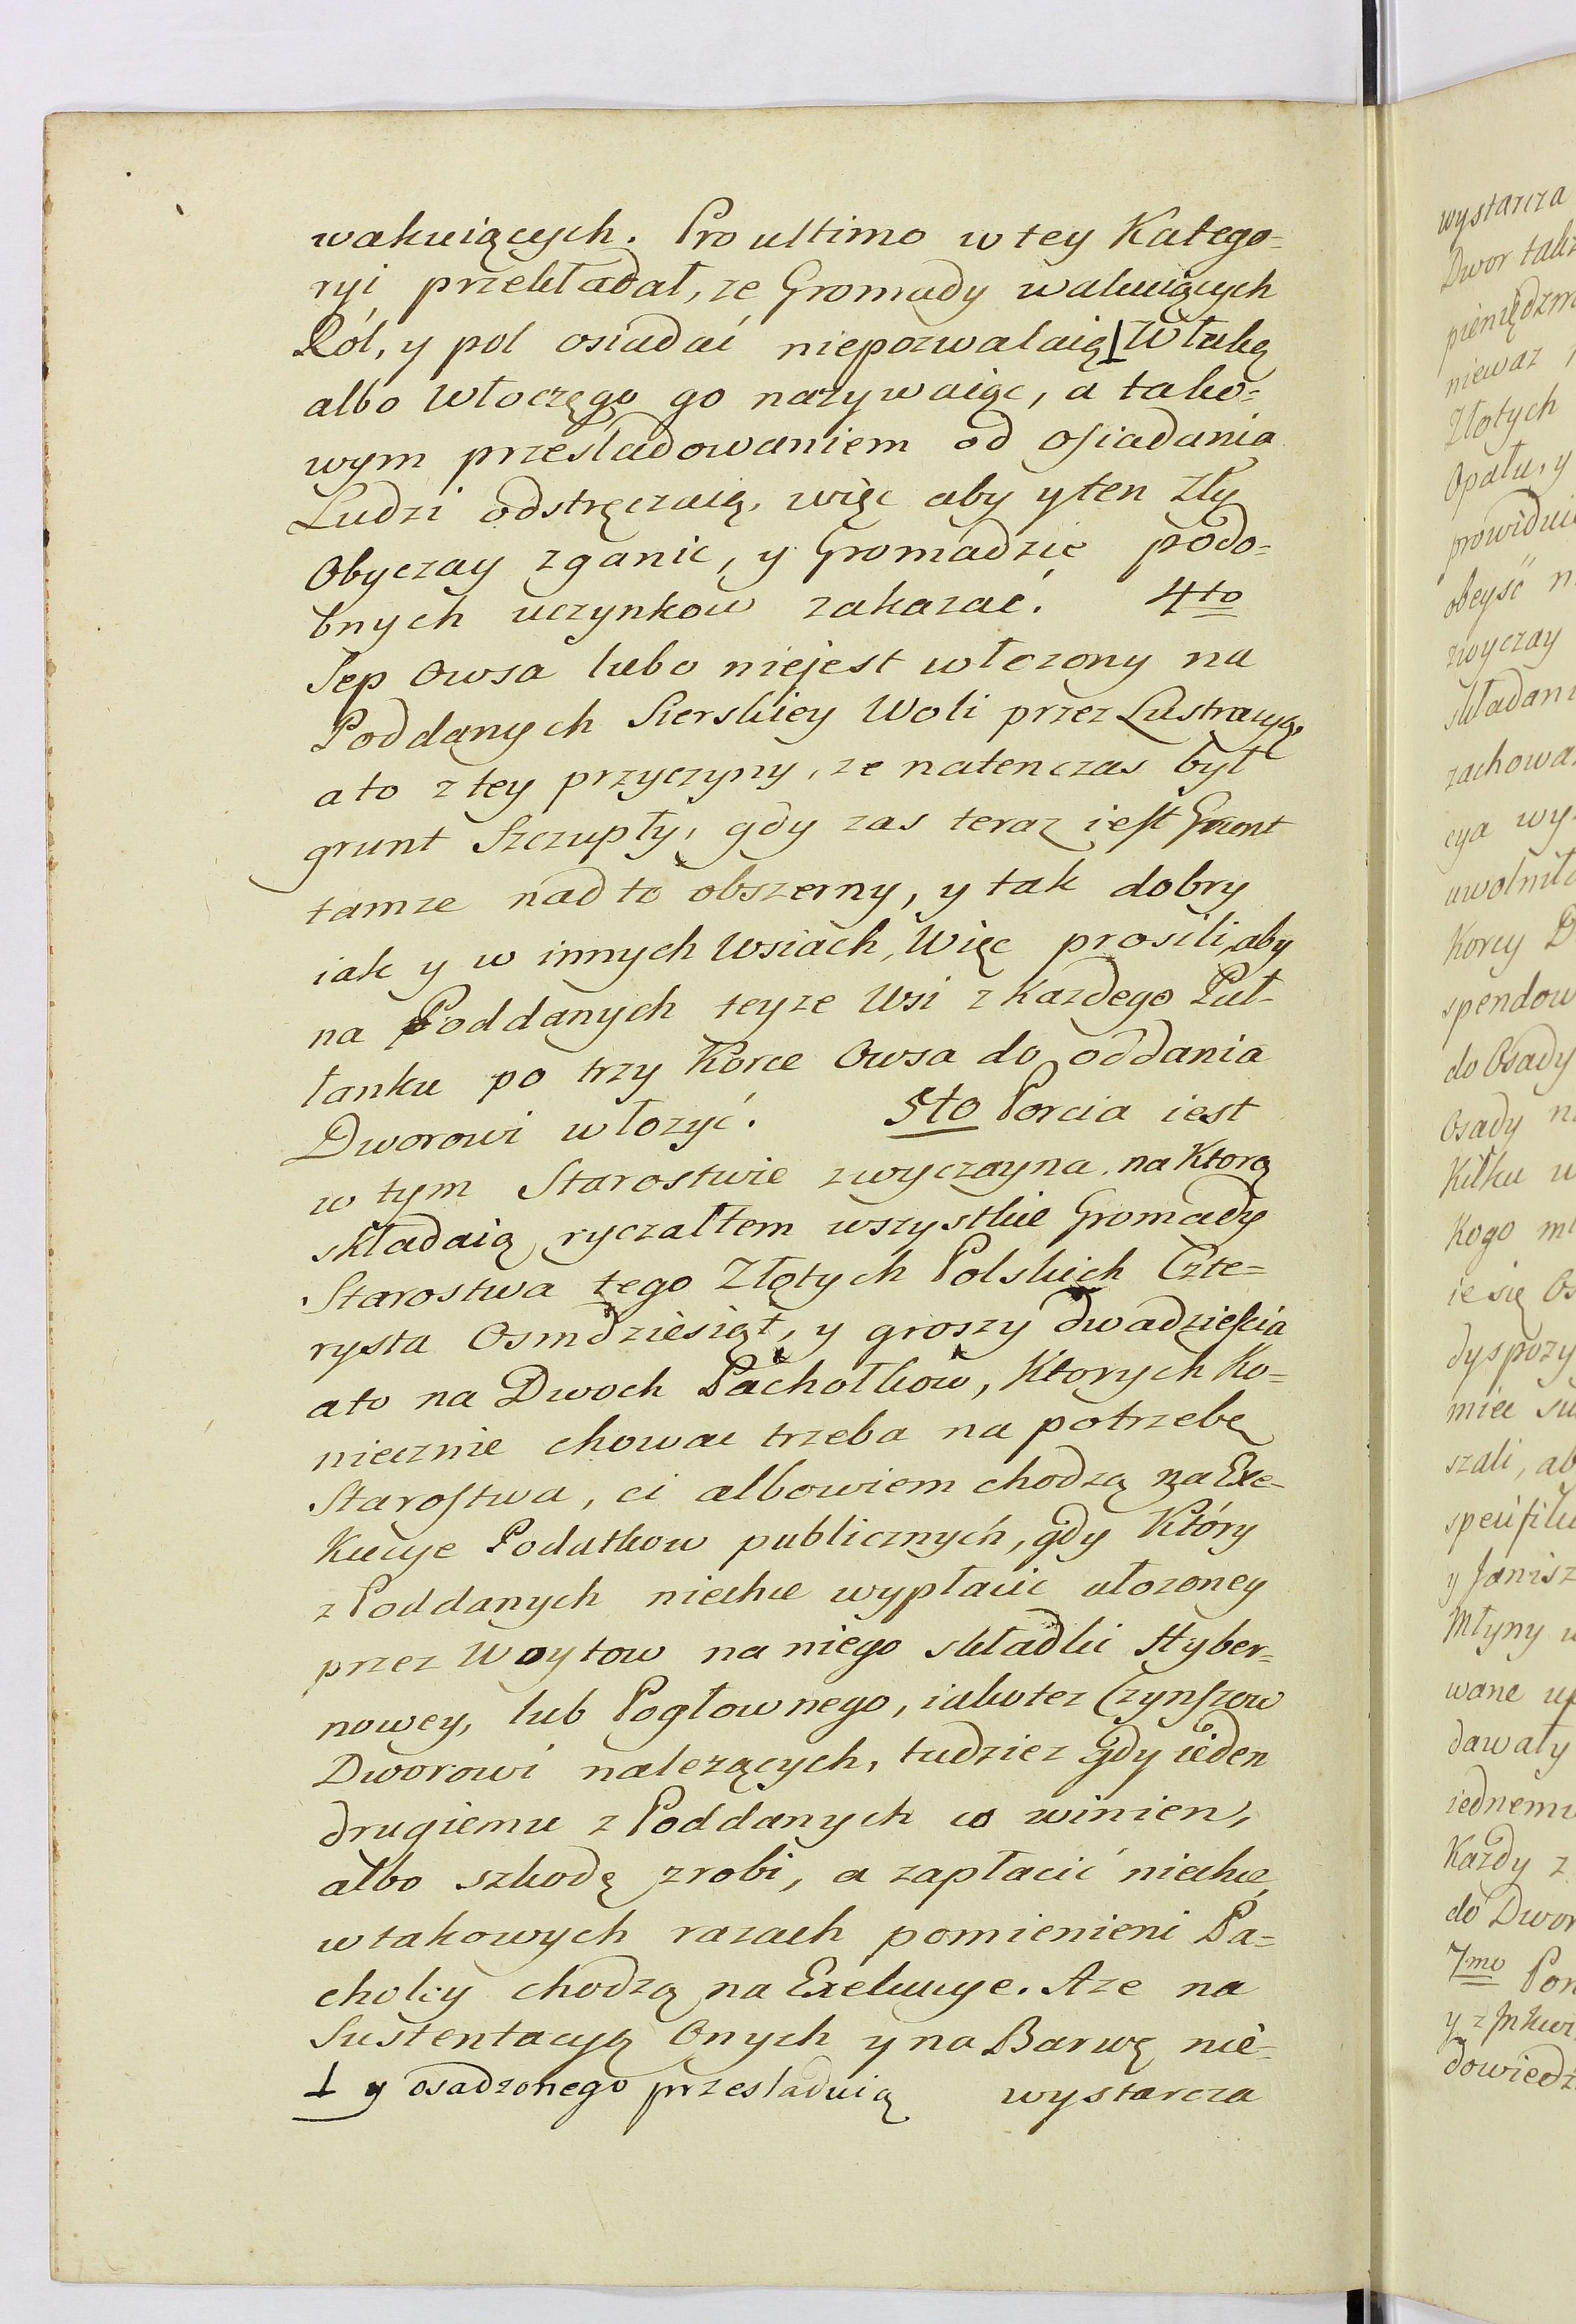 wakuiących. Pro ultimo w tey Katego=
ryi przekładał, ze Gromady wakuiących
Ról, y pol osiadać niepozwalaią ⊥ Włuką
albo Włoczęgo go nazywaiąc, a tako=
wym prześladowaniem od osiadania
Ludzi odstręczaią, więc aby y ten Zły
Obyczay zganic, y Gromadzie podo=
bnych uczynkow zakazać. 4to
Sep Owsa lubo niejest włozony na
Poddanych Sierskiey Woli przez Lustracyą,
a to z tey przyczyny, ze natenczas był
grunt Szczupły, gdy zas teraz iest Grunt
tamze nad to obszerny, y tak dobry
iak y w innych Wsiach, Więc prosili, aby
na Poddanych teyze Wsi z Kazdego Puł-
łanku po trzy Korce Owsa do oddania
Dworowi włozyć. 5to Porcia iest
w tym Starostwie zwyczayna, na Ktorą
składaią ryczałtem wszystkie Gromady
Starostwa tego Złotych Polskich Czte=
rysta Osmdziesiąt, y groszy dwadzieścia
a to na Dwoch Pachołkow, Ktorych Ko=
niecznie chowac trzeba na potrzebę
Starostwa, ci albowiem chodzą na Exe-
Kucye Podatkow publicznych, gdy Który
z Poddanych niechce wypłacic ułozoney
przez Woytow na niego składki Hyber=
nowey, lub Pogłownego, iakotez Czynszow
Dworowi nalezących, tudziez gdy ieden
drugiemu z Poddanych co winien,
albo szkodę zrobi, a zapłacić niechce,
w takowych razach pomienieni Pa=
cholcy chodzą na Exekucye. A ze na
Sustentacyą Onych y na Barwę nie=
⊥ y osadzonego przesladuią wystarcza
wystarcza
Dwor
niewaz
Złotych
Opału, y
obeyść
zwyczay
cya
Korcy
do Osady
Osady
Kilku
Kogo
ie się
szali,
Młyny
wane
dawały
Każdy z
do
7mo
y z